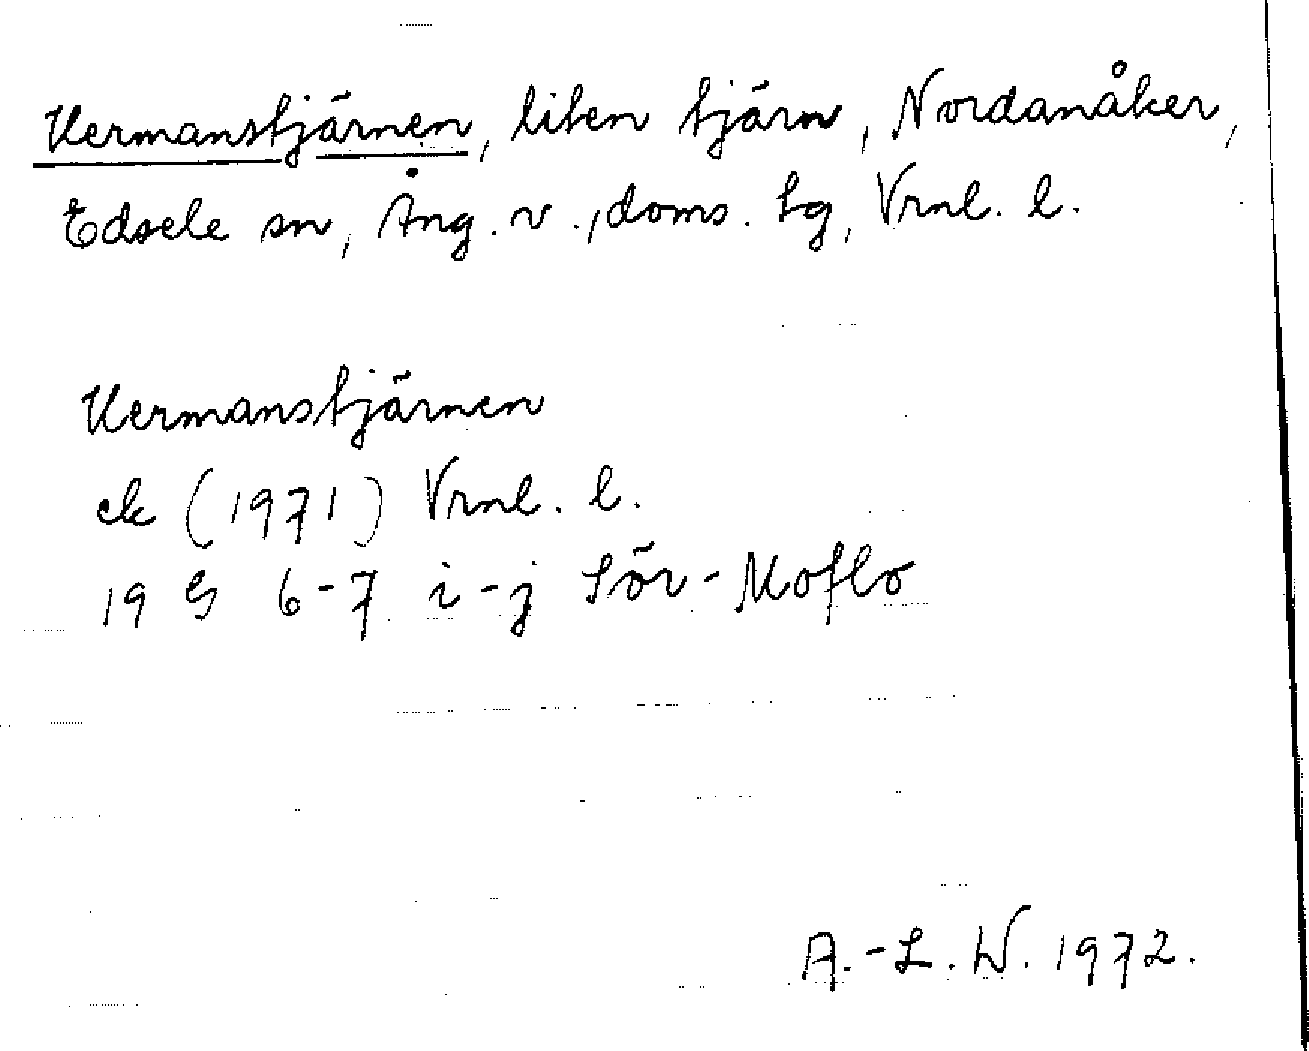 Hermanstjärnen, liten tjärn, Nordanåker,
Edsele sn, Ång. v., doms. lg, Vrnl. l.
Hermanstjärnen
ek (1971) Vrnl. l.
19 G 6-7 i-j Sör-Moflo
A.-L. W. 1972.